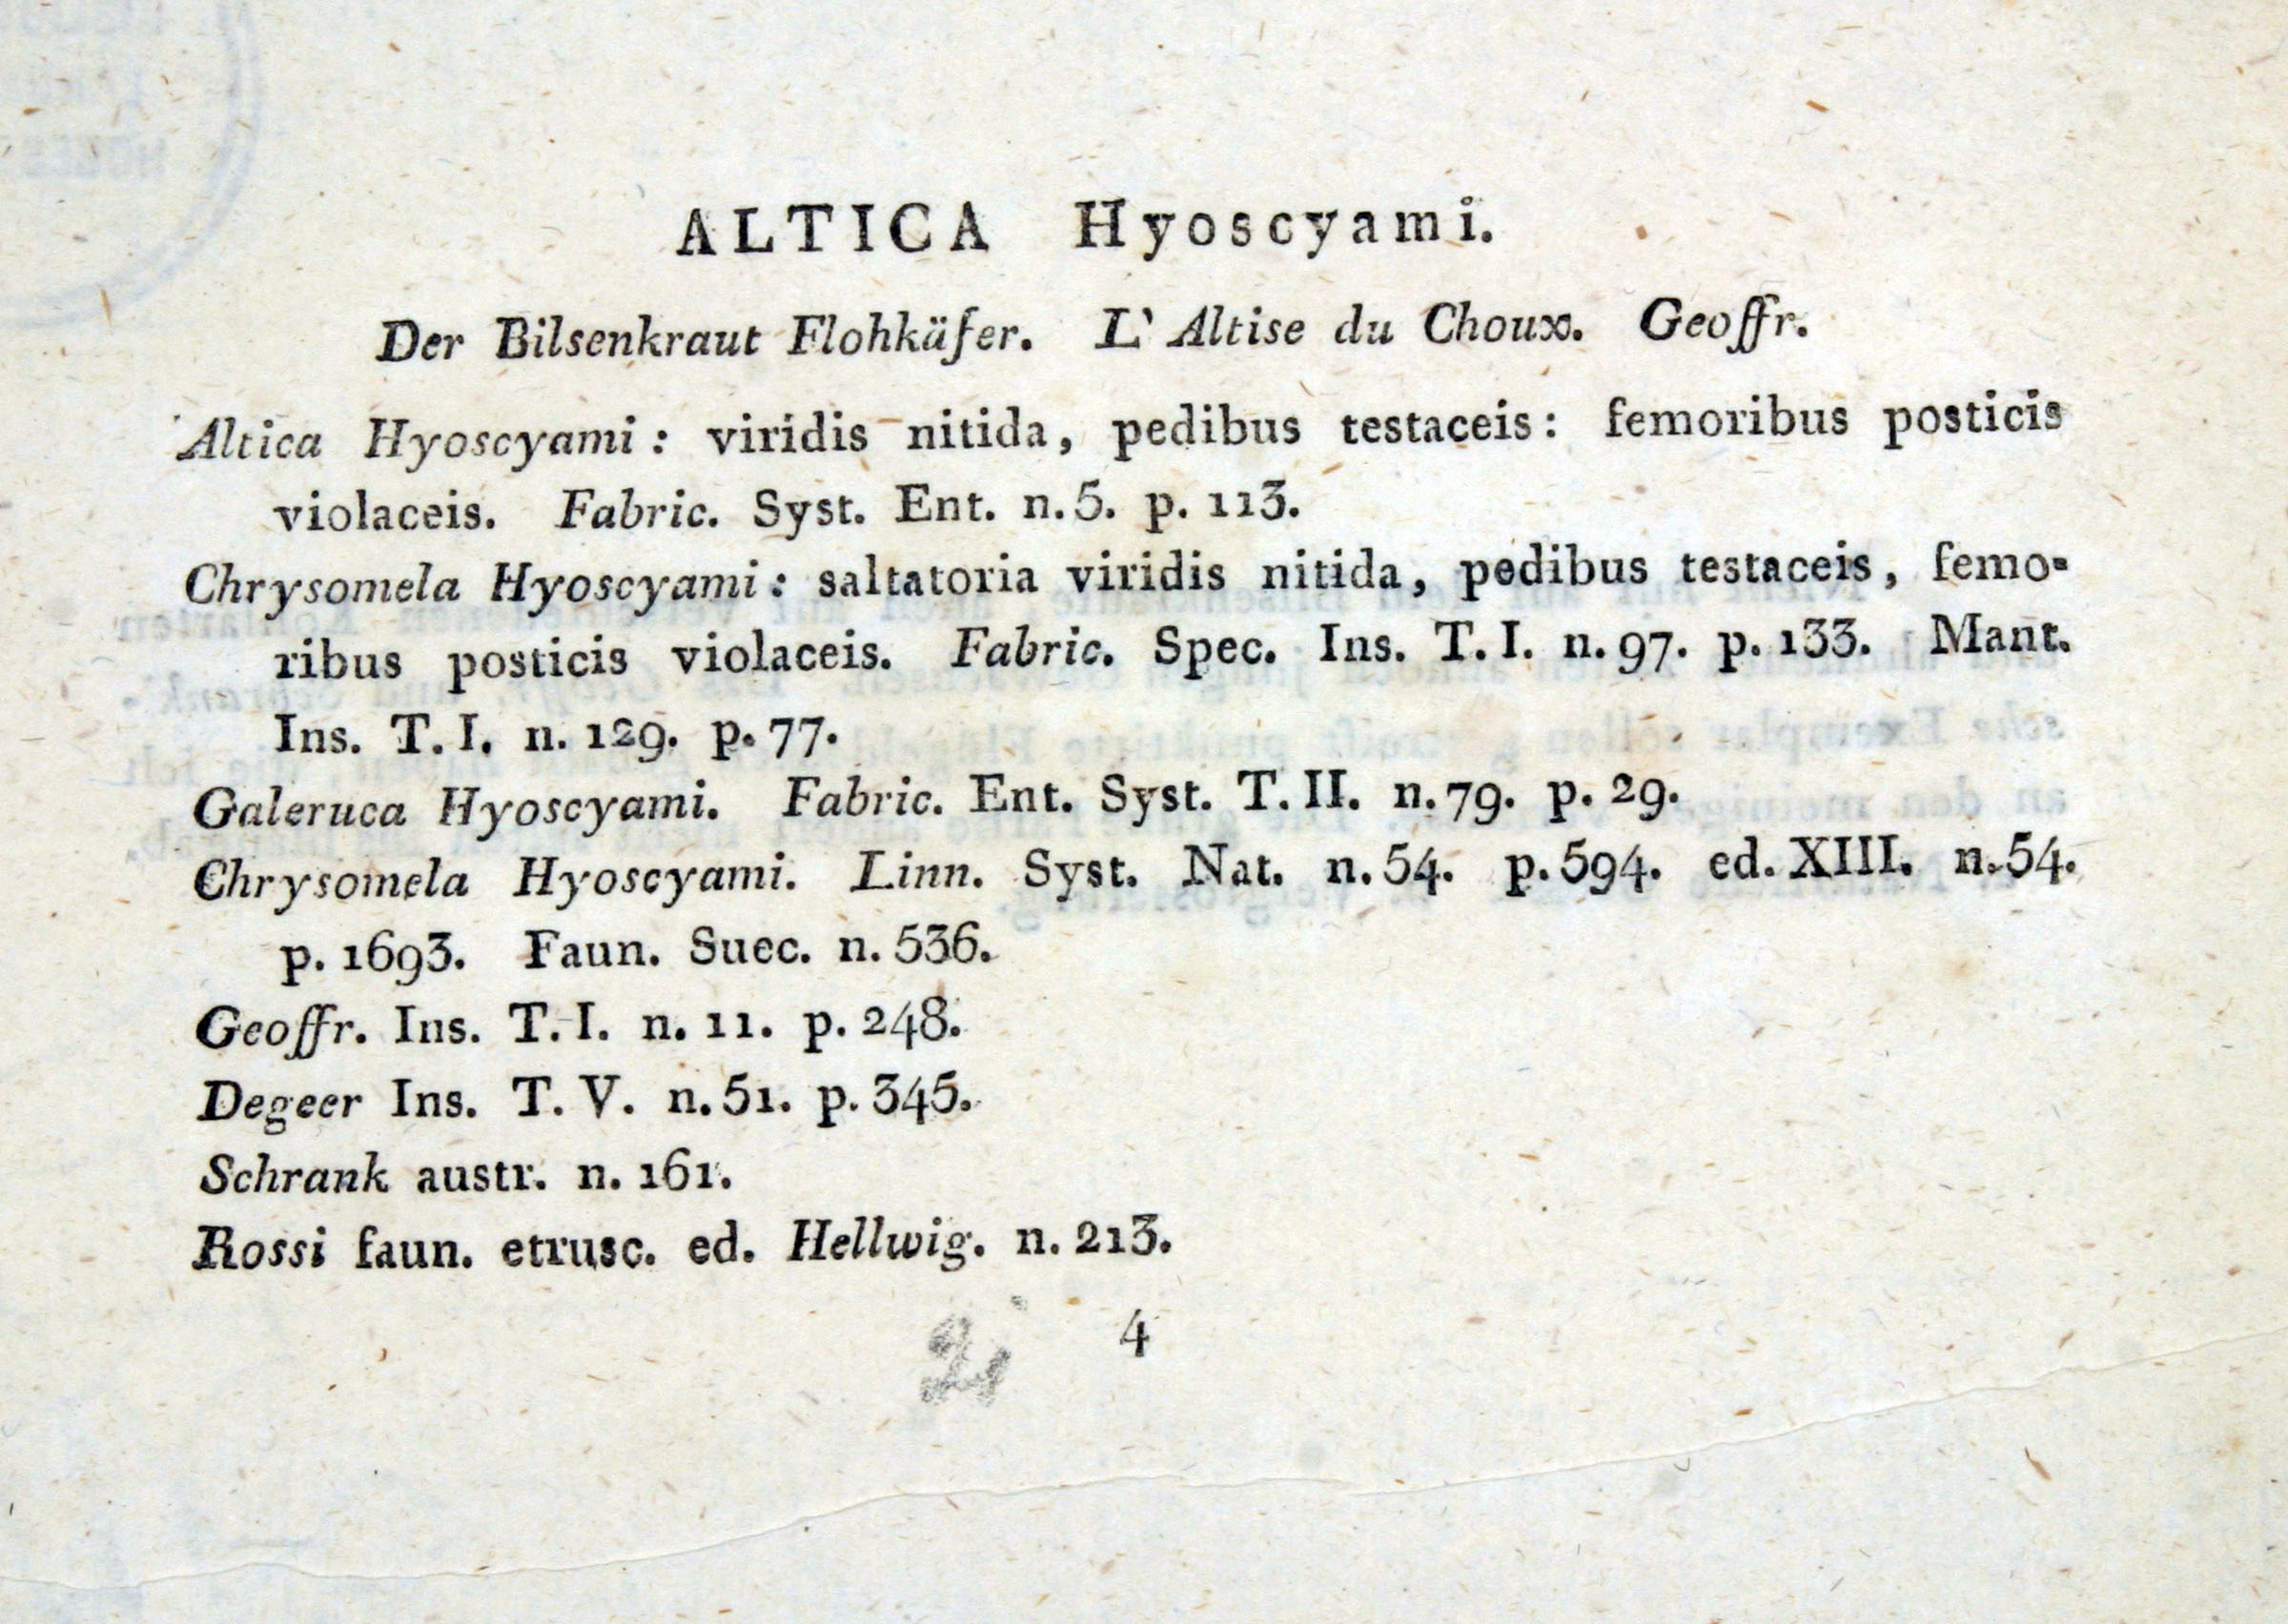 ALTICA Hyoscyami.
Der Bilsenkraut Flohkäfer. L' Altise du Choux. Geoffr.
Altica Hyoscyami: viridis nitida, pedibus testaceis: femoribus posticis
violaceis. Fabric. Syst. Ent. n. 5. p. 113.
Chrysomela Hyoscyami: saltatoria viridis nitida, pedibus testaceis, femo-
ribus posticis violaceis. Fabric. Spec. Ins. T. I. n. 97. p. 133. Mant.
Ins. T. I. n. 129. p. 77.
Galeruca Hyoscyami. Fabric. Ent. Syst. T. II. n. 79. p. 29.
Chrysomela Hyoscyami. Linn. Syst. Nat. n. 54. p. 594. ed. XIII. n. 54.
p. 1693. Faun. Suec. n. 536.
Geoffr. Ins. T. I. n. 11. p. 248.
Degeer Ins. T. V. n. 51. p. 345.
Schrank austr. n. 161.
Rossi faun. etrusc. ed. Hellwig. n. 213.
4